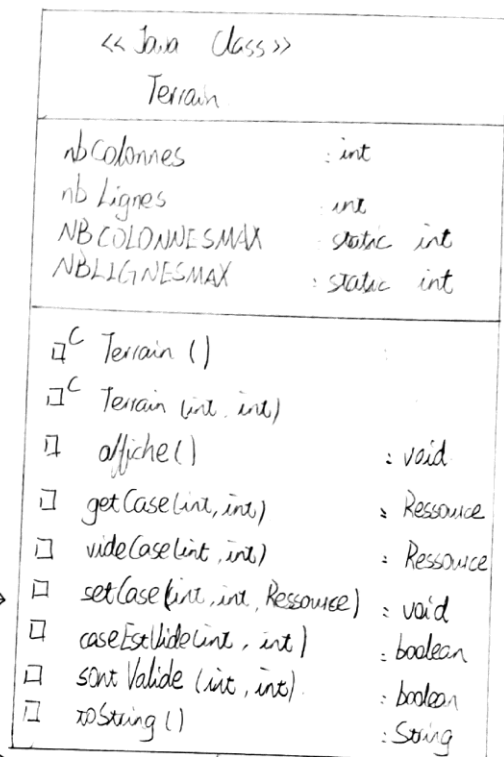 << Java Class>>
Terrain
nbColonnes : int
nbLignes int
NBCOLONNESMAX static int
NBLIGNESMAX : static int
C Terrain ()
C Terrain (int, int)
affiche() : void
getCase(int, int) : Ressource
videCase(int, int) : Ressource
setCase(int, int, Ressource) : void
caseEstVide(int, int) : boolean
sontValide (int, int) : boolean
toString () : String